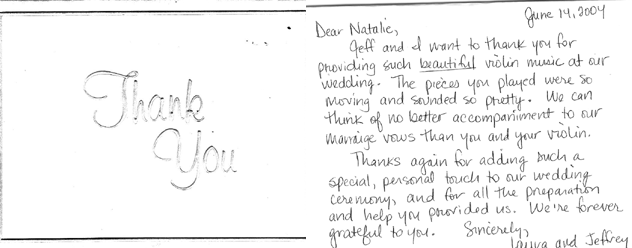 Thank
You
June 14, 2004
Dear Natalie,
Jeff and I want to thank you for
providing such beautiful violin music at our
wedding. The pieces you played were so
moving and sounded so pretty. We can
think of no better accompaniment to our
marraige vows than you and your violin.
Thanks again for adding such a
special, personal touch to our wedding
ceremony, and for all the preparation
and help you provided us. We're forever
grateful to you. Sincerely,
Laura and Jeffrey